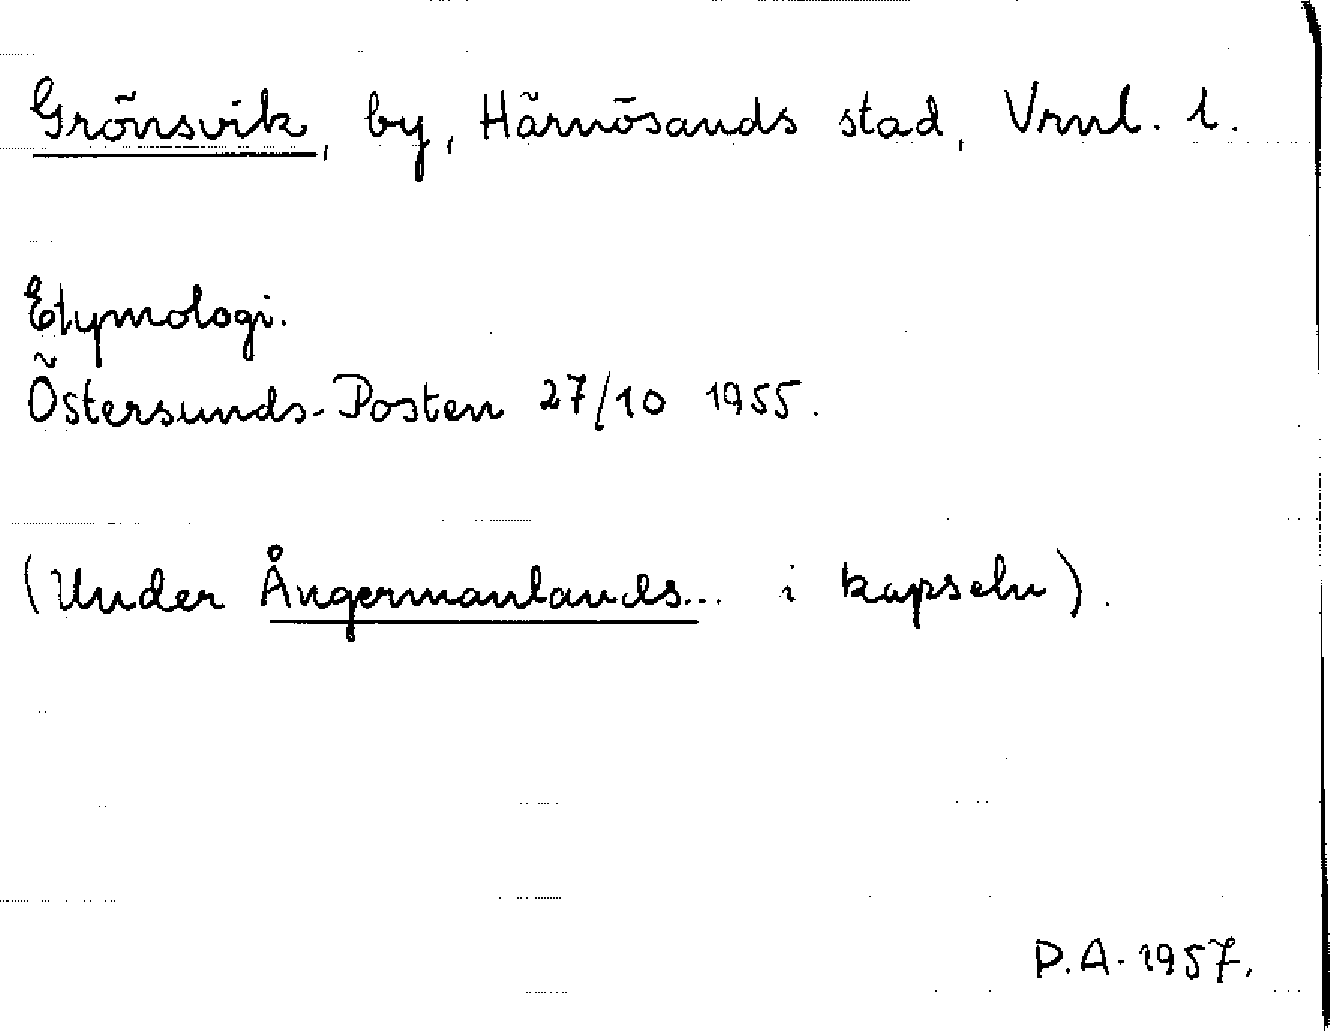 Grönsvik, by, Härnösands stad, Vrnl. l.
Etymologi.
Östersunds-Posten 27/10 1955.
(Under Ångermanlands... i kapseln).
D.A. 1957.